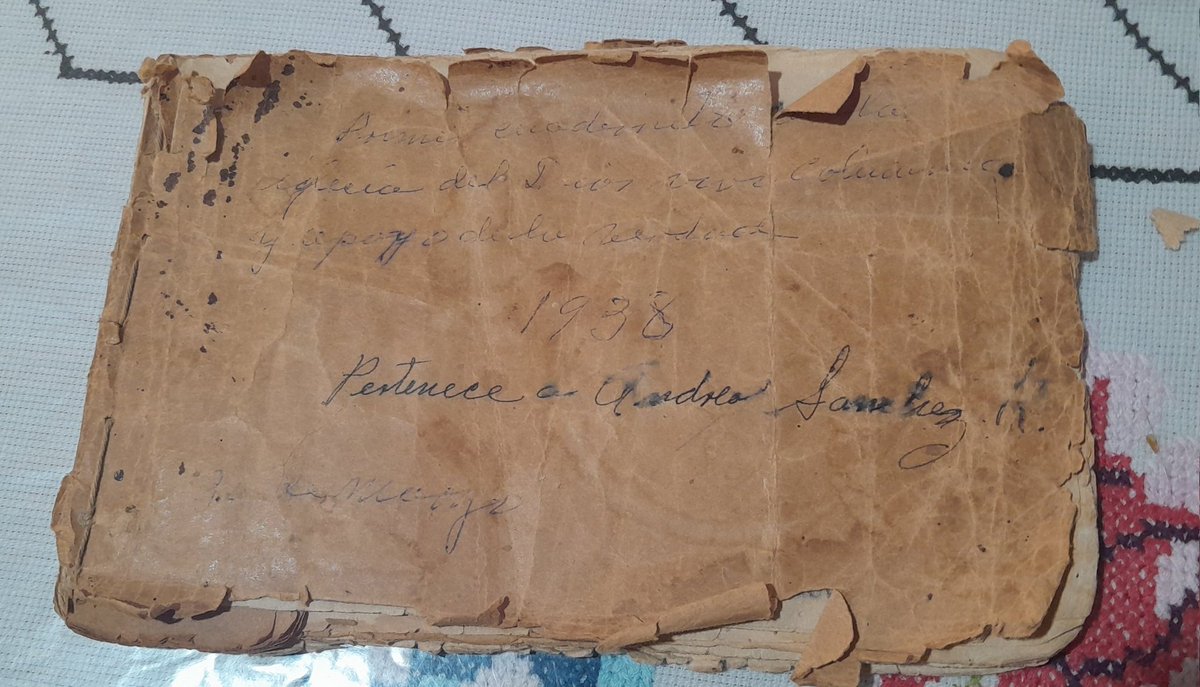 Primer cuadernito de la
iglecia del Dios vivo Columna
y apoyo de la verdad
1938
Pertenece a Andres Sanchez R.
de Marzo